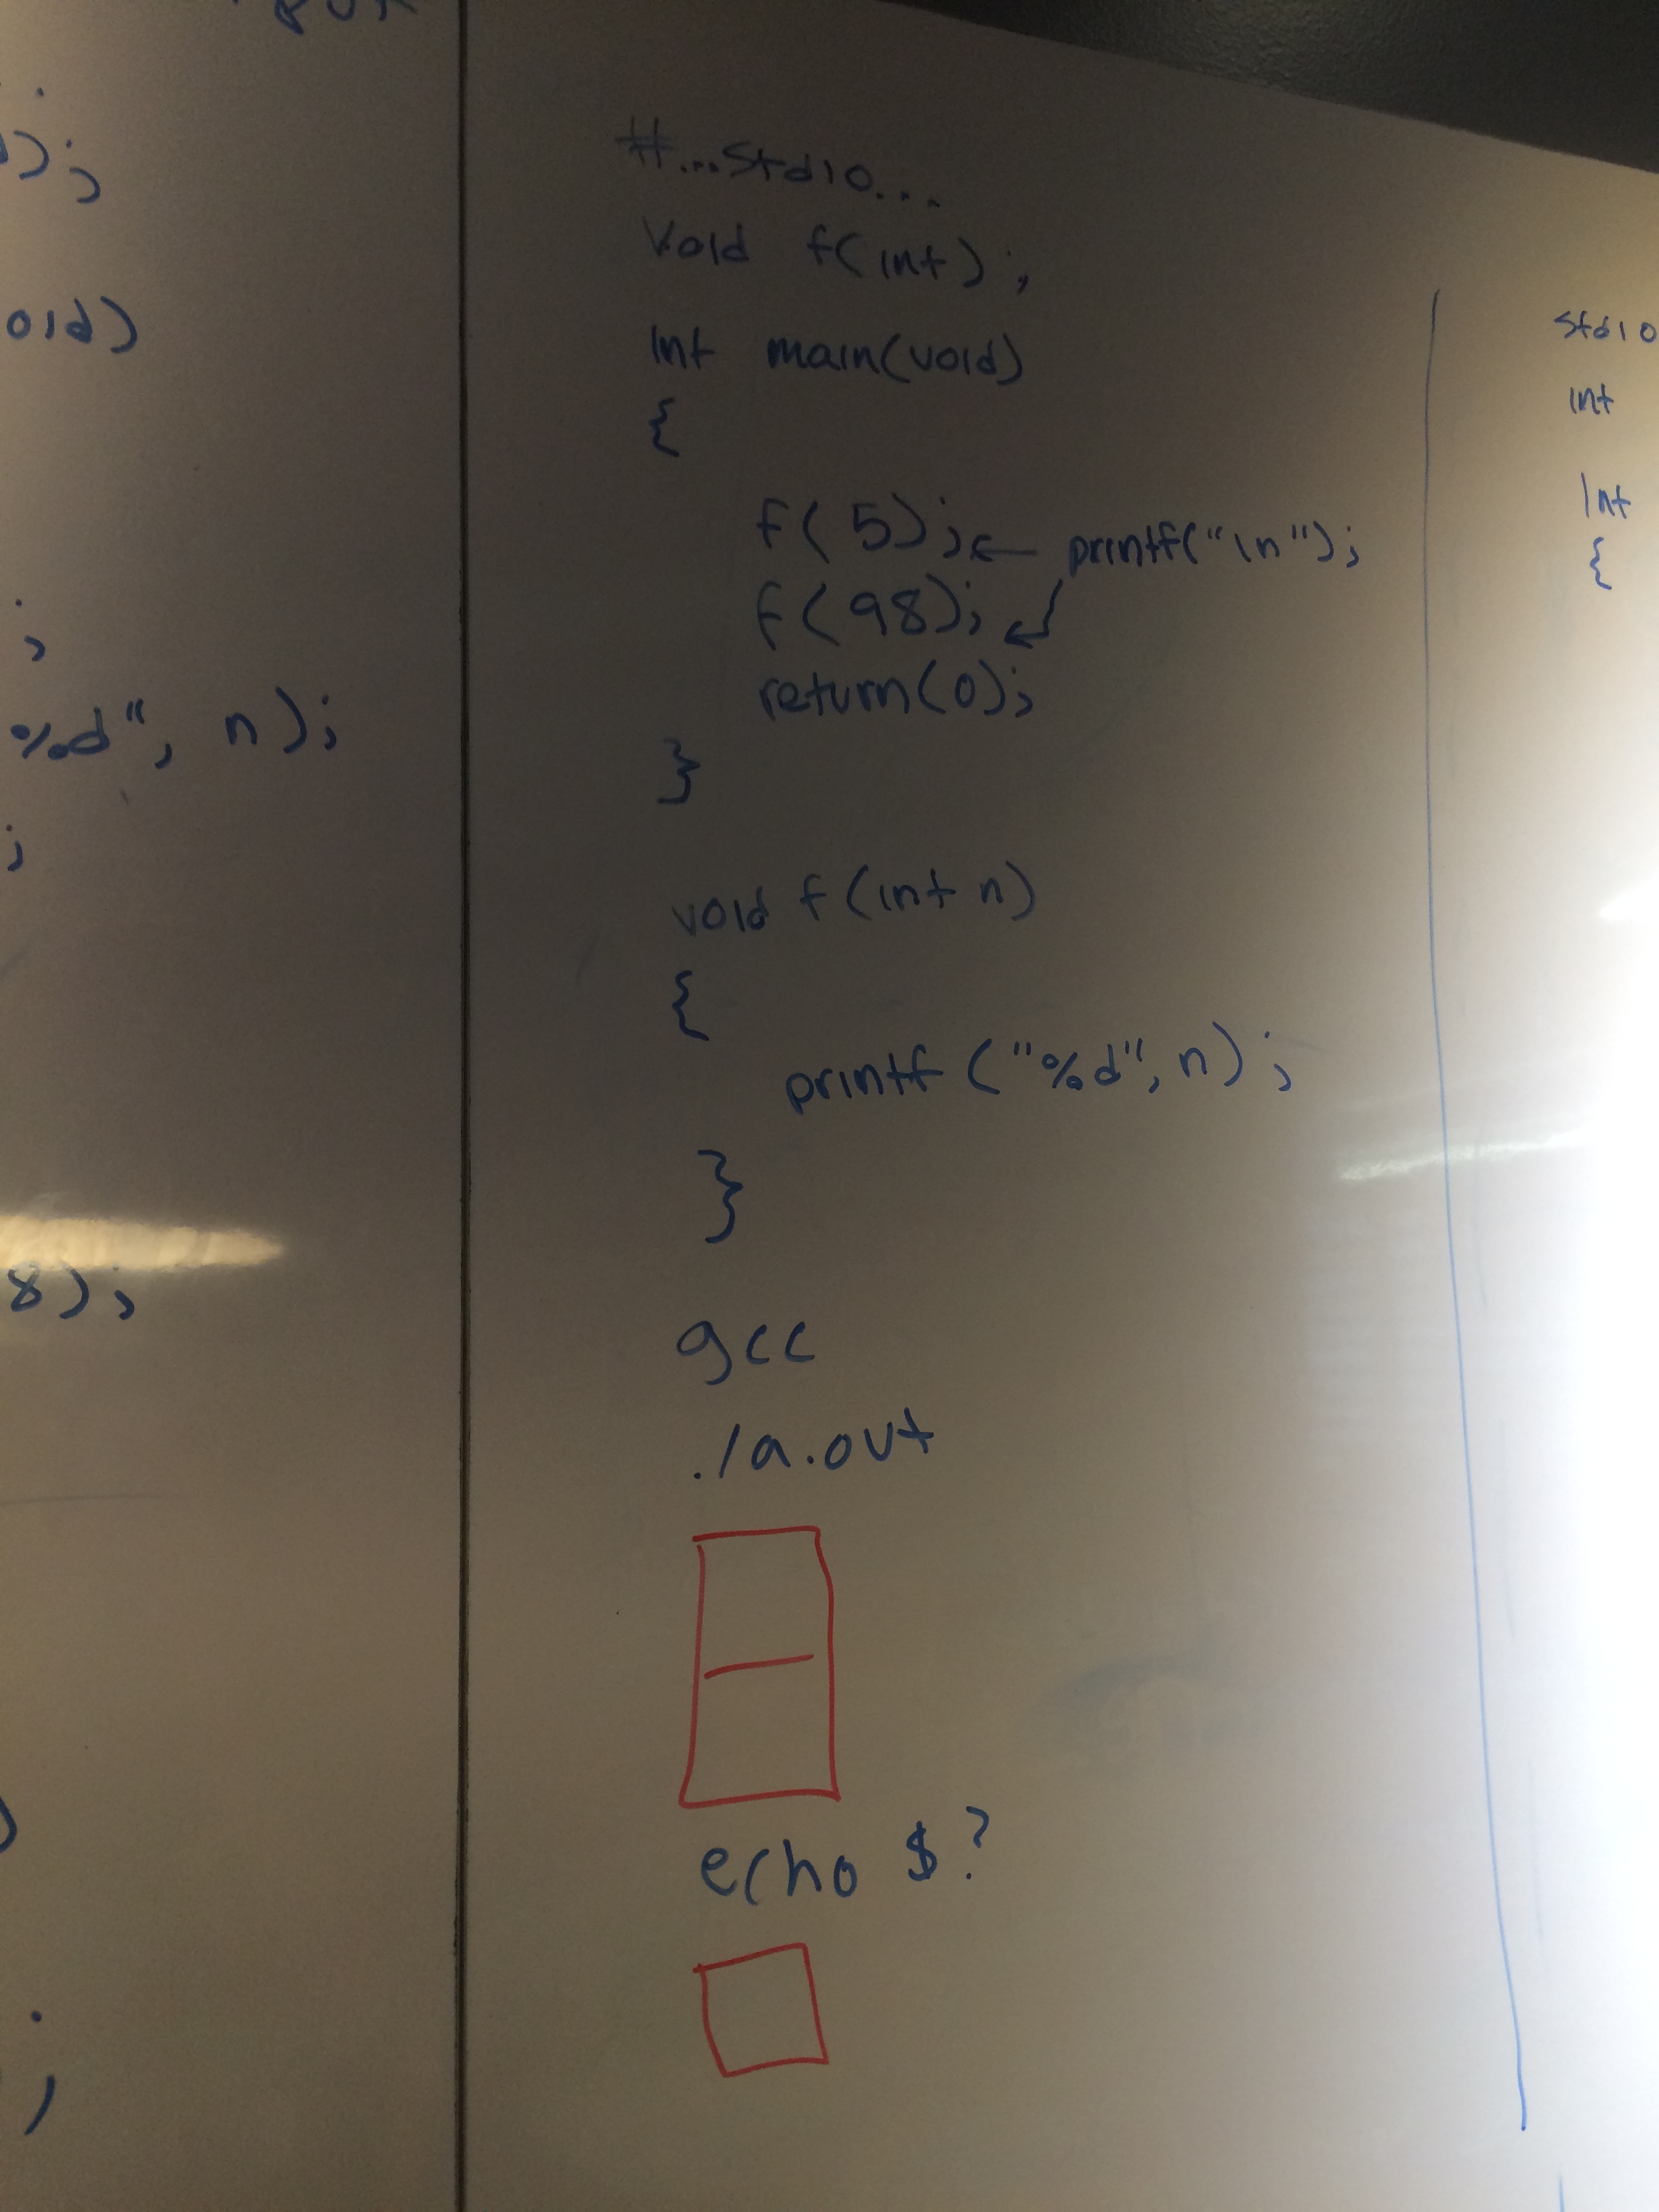 );
oid)
;
%d", n);
;
8);
)
;
#...stdio...
void f(int);
int main(void)
{
f(5);← printf("\n");
f(98);↙
return(0);
}
void f(int n)
{
printf("%d", n);
}
gcc
./a.out
echo $?
stdio
int
int
{